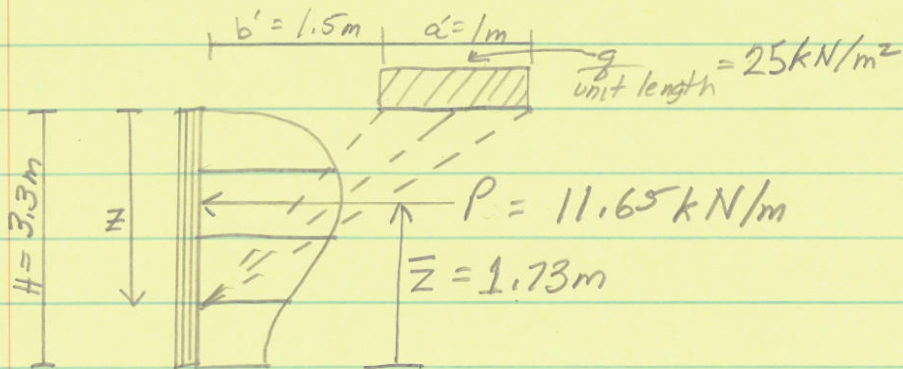 b' = 1.5m
a' = 1m
q / unit length = 25kN/m²
H = 3.3m
z
P = 11.65kN/m
z̄ = 1.73m